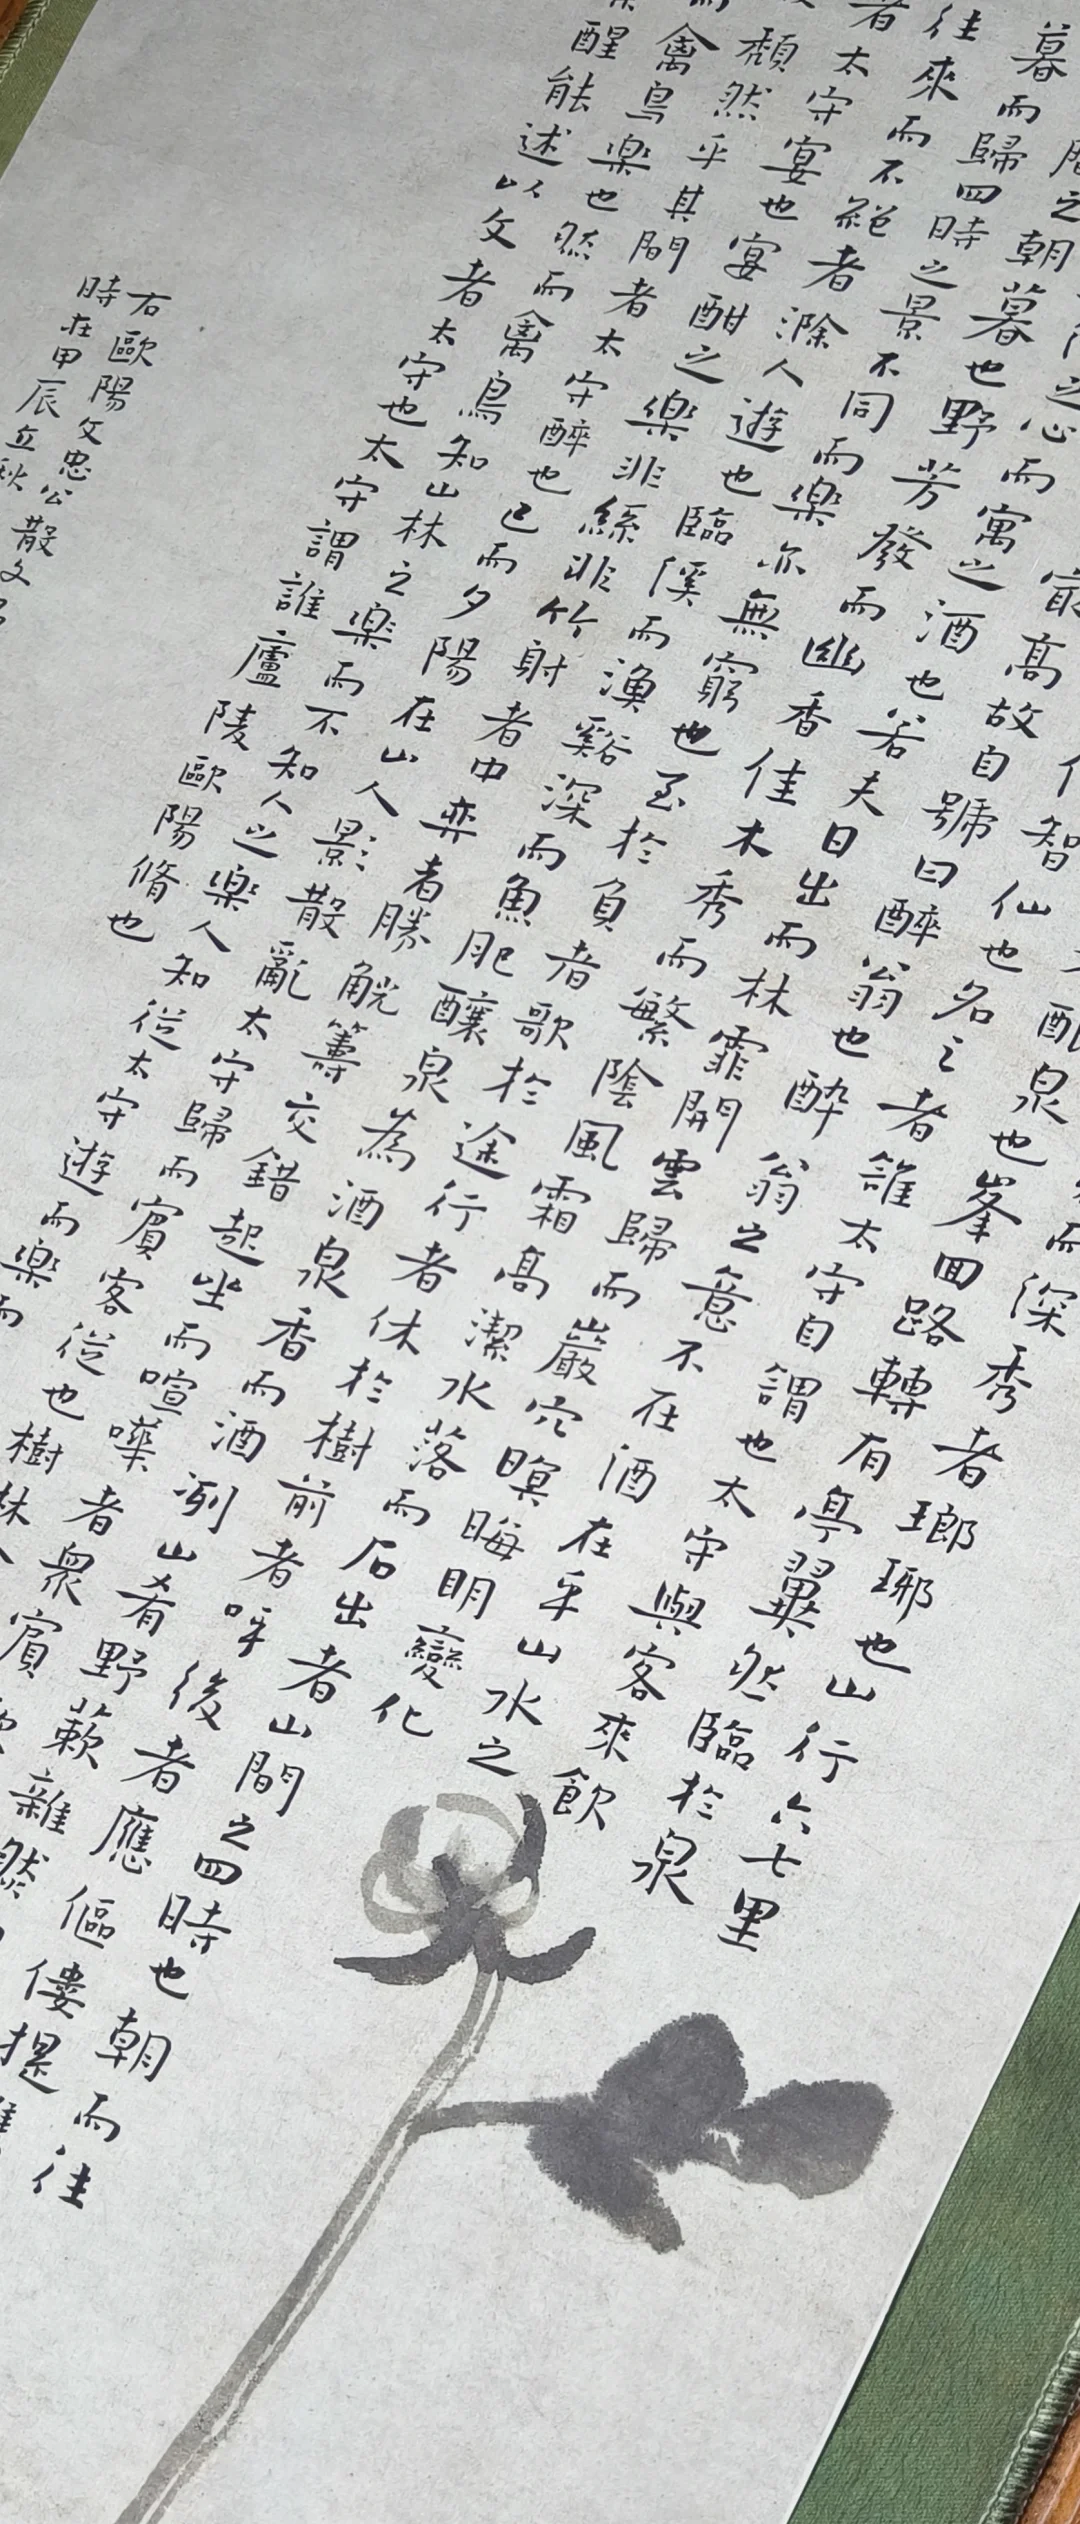 而深秀者瑯琊也山行六七里
釀泉也峯回路轉有亭翼然臨於泉
智仙也名之者誰太守自謂也太守與客來飲
最高故自號曰醉翁也醉翁之意不在酒在乎山水之
之心而寓之酒也若夫日出而林霏開雲歸而巖穴暝晦明變化
間之朝暮也野芳發而幽香佳木秀而繁陰風霜高潔水落而石出者山間之四時也朝而往
暮而歸四時之景不同而樂亦無窮也至於負者歌於途行者休於樹前者呼後者應傴僂提攜
往來而不絕者滁人遊也臨溪而漁谿深而魚肥釀泉為酒泉香而酒洌山肴野蔌雜然
者太守宴也宴酣之樂非絲非竹射者中弈者勝觥籌交錯起坐而喧嘩者衆賓歡
頹然乎其間者太守醉也已而夕陽在山人影散亂太守歸而賓客從也樹林
而禽鳥樂也然而禽鳥知山林之樂而不知人之樂人知從太守遊而樂而
醒能述以文者太守也太守謂誰廬陵歐陽脩也
右歐陽文忠公散文
時在甲辰立秋